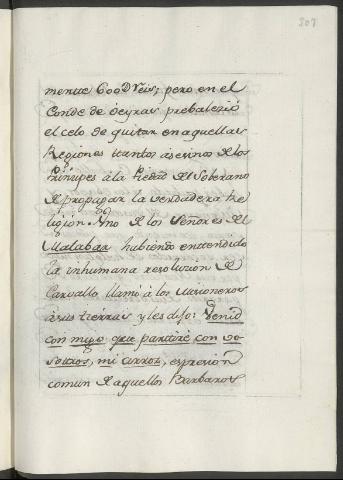 307
mente 600D reis; pero en el
Conde de Oeyras prebalezió
el celo de quitar en aquellas
Regiones tantos asesinos de los
Principes â la Piedad del Soberano
de propagar la verdadera Re
ligion. Uno de los Señores del
Malabar habiendo entendido
la inhumana resoluzion de
Carvallo llamó â los Misioneros
â sus tierras y les dijo: Venid
con migo que partiré con vo-
sotros, mi arroz, espresion
comun de aquellos Barbaros